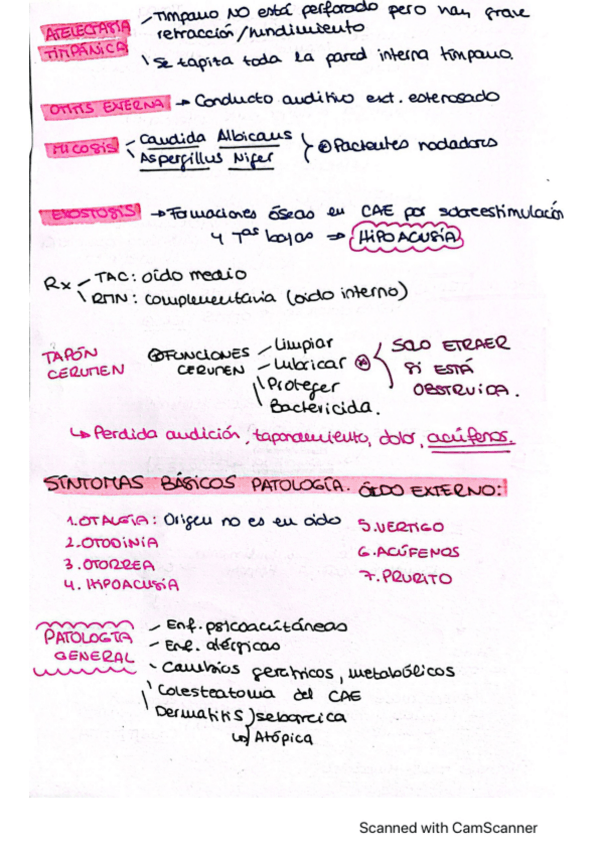 ATELECTASIA TIMPÁNICA
- Tímpano NO está perforado pero hay grave
retracción/hundimiento
\ Se tapita toda la pared interna tímpano.
OTITIS EXTERNA → Conducto auditivo ext. esterosado
MICOSIS - Candida Albicans
Aspergillus Niger
Pacientes nadadores
EXOSTOSIS → Formaciones óseas en CAE por sobreestimulación
y Tªs bajas ⇒ HIPOACUSIA
Rx - TAC: oído medio
\ RMN: complementaria (oído interno)
TAPÓN
CERUMEN
FUNCIONES
CERUMEN
- Limpiar
- Lubricar
\ Proteger
Bactericida.
SOLO ETRAER
SI ESTÁ
OBSTRUIDA.
↳ Perdida audición, taponamiento, dolor, acúfenos.
SÍNTOMAS BÁSICOS PATOLOGÍA. OÍDO EXTERNO:
1. OTALGIA: Origen no es en oído
2. OTODINIA
3. OTORREA
4. HIPOACUSIA
5. VERTIGO
6. ACÚFENOS
7. PRURITO
PATOLOGIA
GENERAL
- Enf. psicoacutáneas
- Enf. alérgicas
- Cambios geriatricos, metabólicos
\ Colesteatoma del CAE
Dermatitis) seborreica
↳ Atópica
Scanned with CamScanner